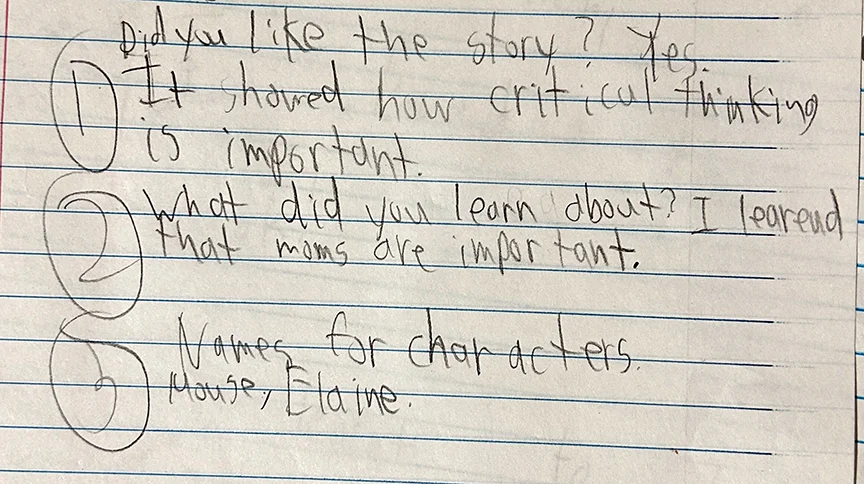 Did you like the story? Yes.
1 It showed how critical thinking
is important.
2 What did you learn about? I learend
that moms are important.
3 Names for characters.
Mouse, Elaine.